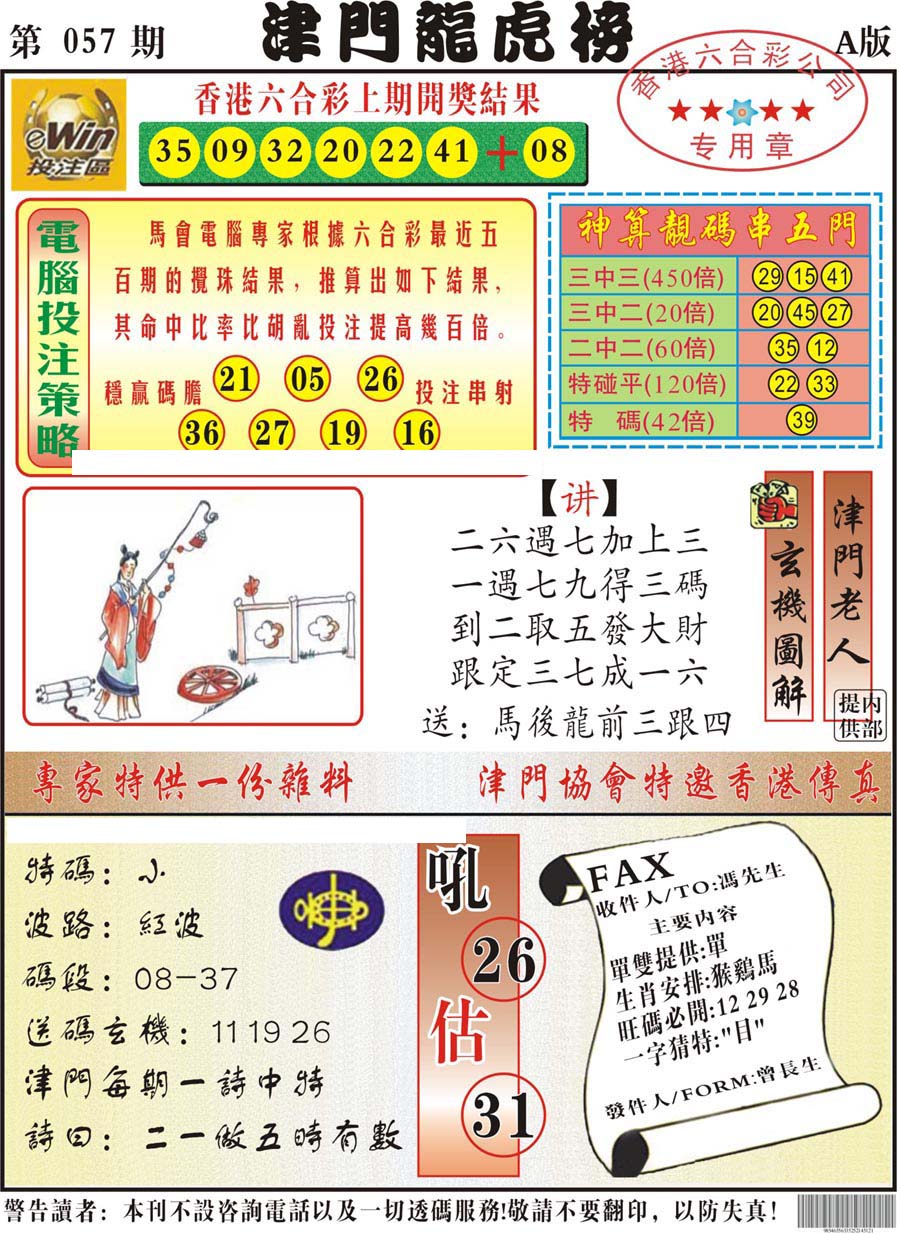 第 057 期
津門龍虎榜
A版
eWin
投注區
香港六合彩上期開獎結果
35 09 32 20 22 41 + 08
香港六合彩公司
★★★★
专用章
電腦投注策略
馬會電腦專家根據六合彩最近五
百期的攪珠結果，推算出如下結果，
其命中比率比胡亂投注提高幾百倍。
穩贏碼膽 21 05 26 投注串射
36 27 19 16
神算靚碼串五門
三中三(450倍) 29 15 41
三中二(20倍) 20 45 27
二中二(60倍) 35 12
特碰平(120倍) 22 33
特 碼(42倍) 39
【讲】
二六遇七加上三
一遇七九得三碼
到二取五發大財
跟定三七成一六
送：馬後龍前三跟四
玄機圖解
津門老人
內部提供
專家特供一份雜料
津門協會特邀香港傳真
特碼：小
波路：紅波
碼段：08-37
送碼玄機：11 19 26
津門每期一詩中特
詩曰：二一做五時有數
吼
26
估
31
FAX
收件人/TO:馮先生
主要内容
單雙提供:單
生肖安排:猴鷄馬
旺碼必開:12 29 28
一字猜特:"目"
發件人/FORM:曾長生
警告讀者：本刊不設咨詢電話以及一切透碼服務!敬請不要翻印，以防失真!